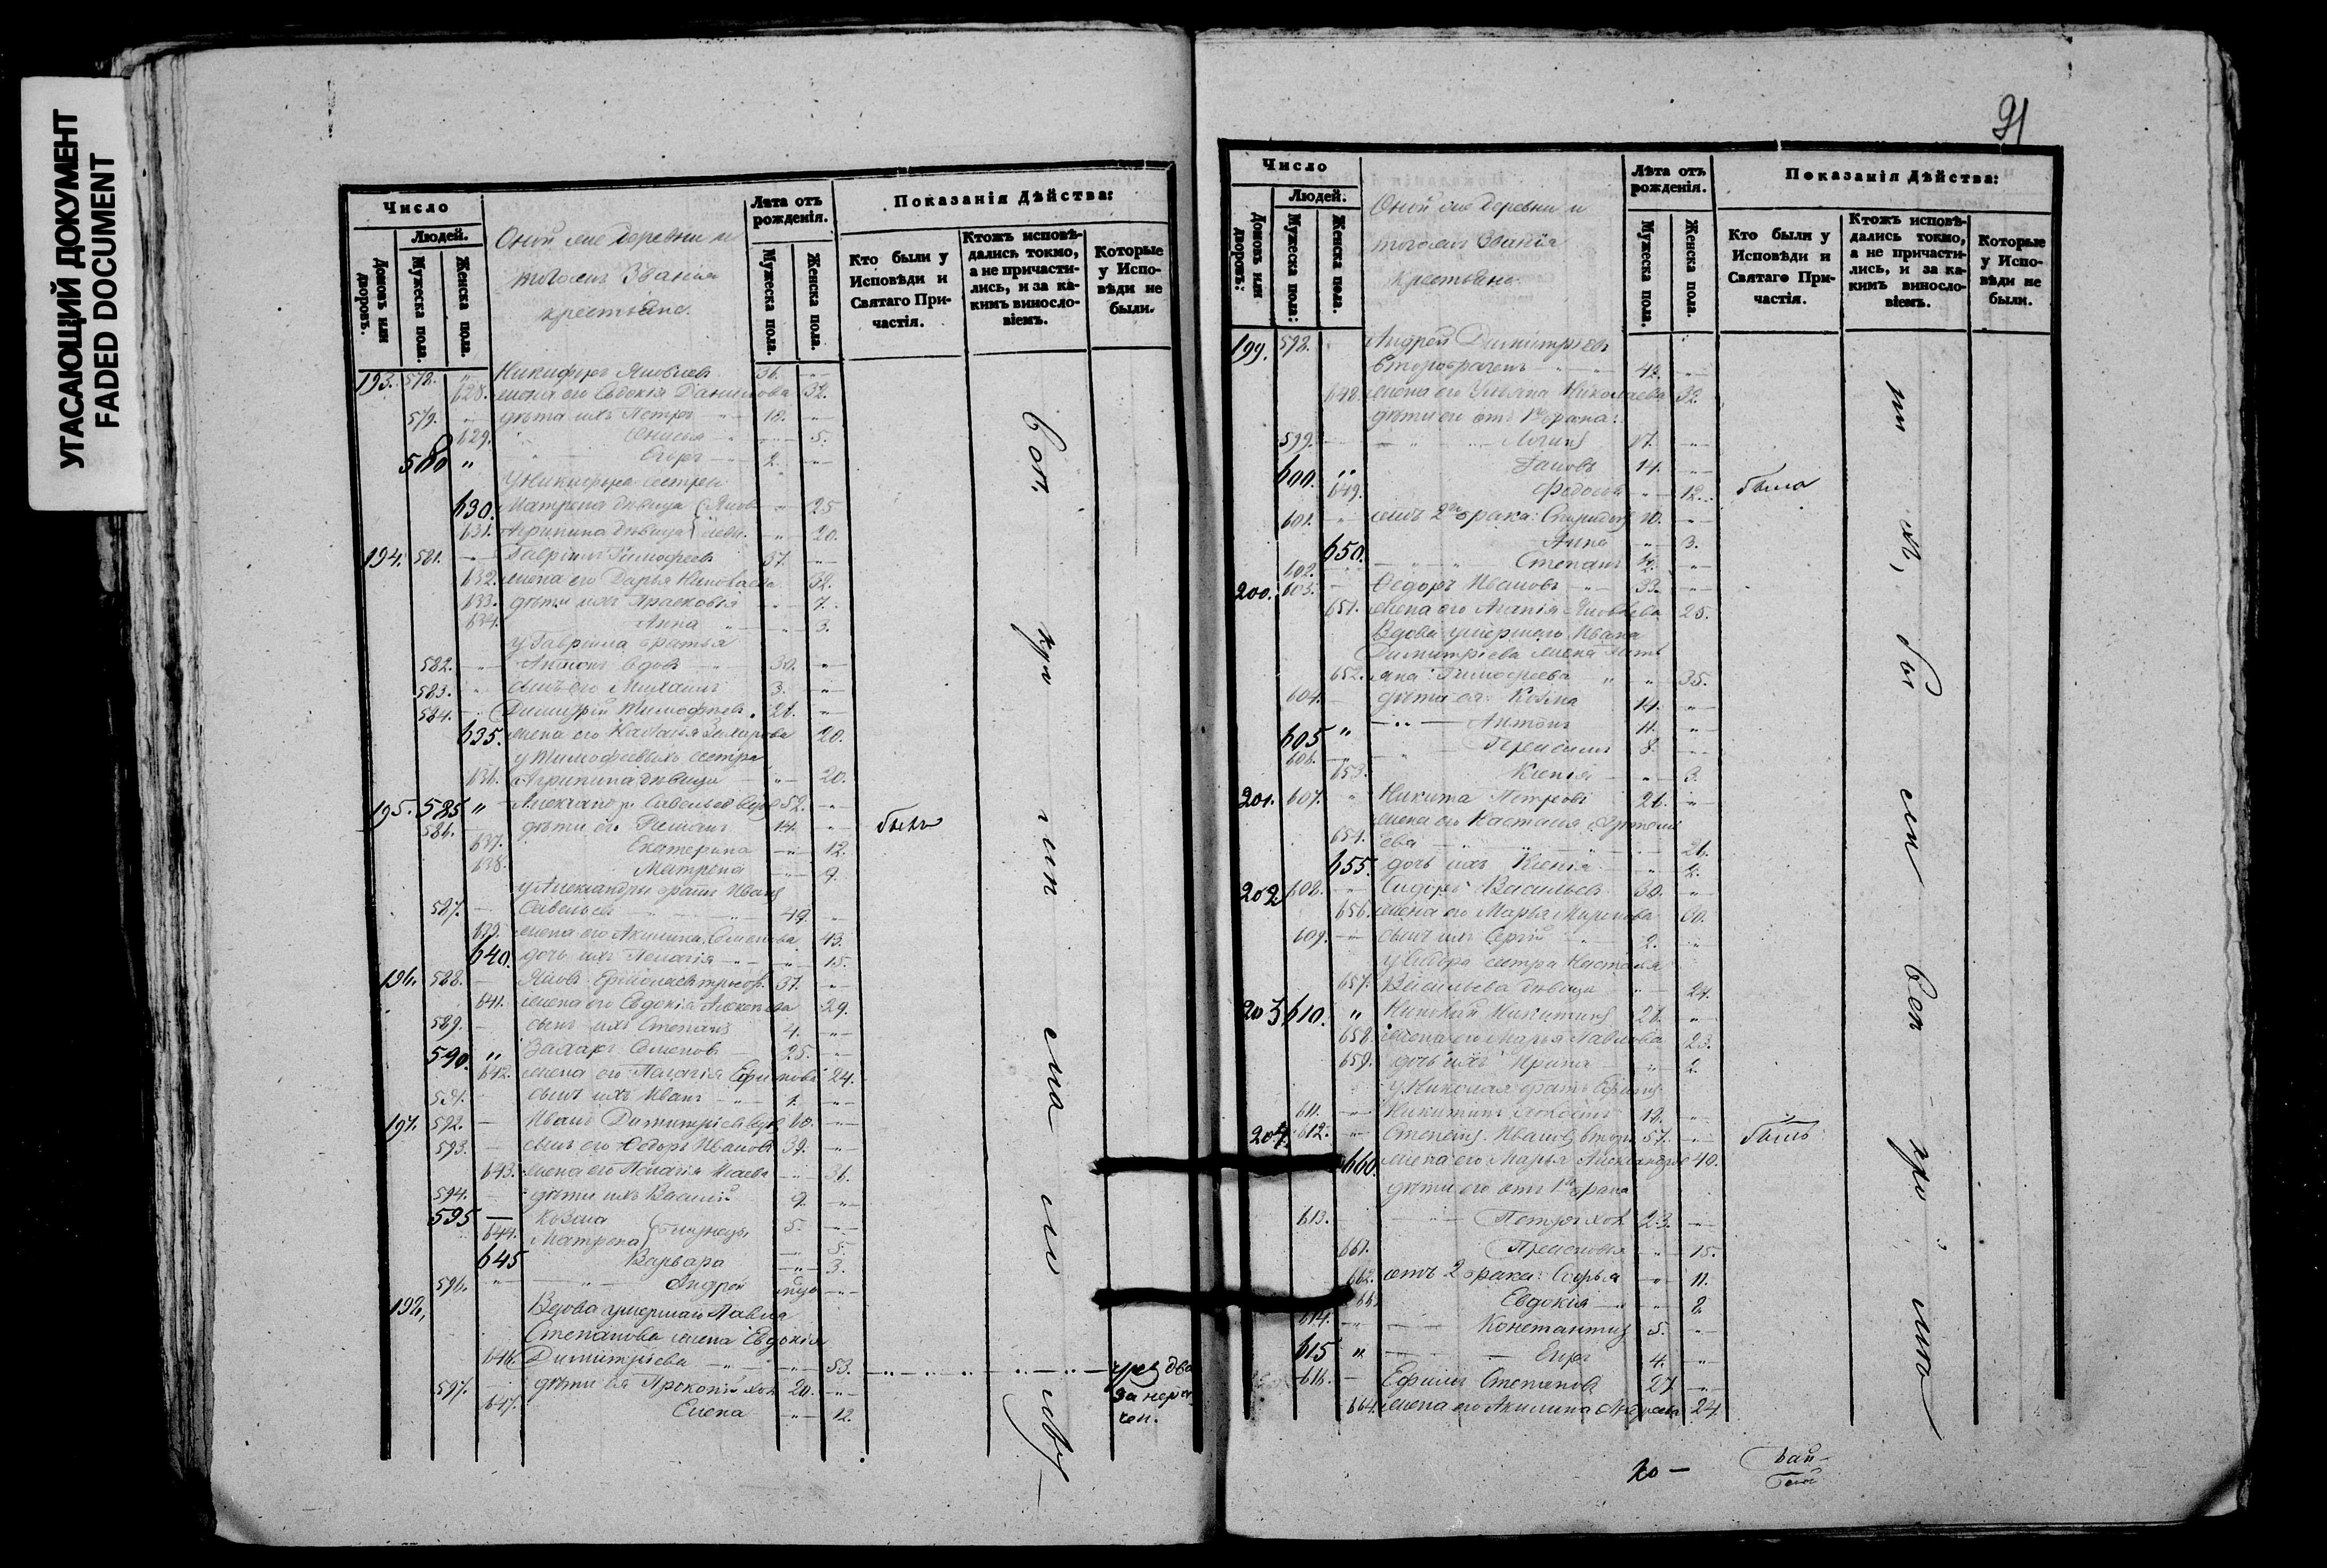 УГАСАЮЩИЙ ДОКУМЕНТ
FADED DOCUMENT
Число
Людей.
Домовъ или дворовъ.
Мужеска пола.
Женска пола.
Оной же деревни и
тогожъ Званія
крестьяне.
Лѣта отъ рожденія.
Мужеска пола.
Женска пола.
Показанія Дѣйства:
Кто были у Исповѣди и Святаго Причастія.
Ктожъ исповѣдались токмо, а не причастились, и за какимъ винословіемъ.
Которые у Исповѣди не были.
193. 578. " Никифоръ Яковлевъ 36. "
628. жена его Евдокія Данилова 32.
579. " дѣти ихъ Петръ 12. "
629. " 5.
580 " Егоръ 2. "
у Никифора сестры
630. Матрена дѣвица Яков " 25
631. Агрипина дѣвица левы. " 20.
194. 581. Гаврiилъ Тимофеевъ 37. "
632. жена его Дарья Николаева 32.
633. дѣти ихъ Прасковья " 7.
634. Анна " 3.
у Гаврiила братья
582. " вдовъ 30. "
583. " сынъ его Михаилъ 3. "
584. Димитрій Тимофеевъ 21. "
635. жена его Наталья Захарова 20.
у Тимофеевыхъ сестра
636. Агрипина дѣвица " 20.
195. 585 " Александръ Савельев вдов 52. "
586. дѣти его 14. " былъ
637. Екатерина " 12.
638. Матрена " 9.
у Александра братъ Иванъ
587. Савельевъ 49. "
639. жена его Акилина Семенова 43.
640. дочь ихъ Пелагія " 15.
196. 588. Яковъ 37. "
641. жена его Евдокія Алексѣева 29.
589. сынъ ихъ Степанъ 4. "
590. " Захаръ Семеновъ 25. "
642. жена его Пелагія 24.
591. сынъ ихъ Иванъ 1. "
197. 592. Иванъ Димитріевъ вдов 60. "
593. сынъ его Ѳедоръ Ивановъ 39. "
643. жена его Пелагія Исаева " 36.
594. дѣти ихъ Василій 9. "
595 Козма 5. "
644. Матрена близнецы " 5.
645 Варвара " 3.
596. " Андрей "
198. Вдова умершаго Павла
Степанова жена Евдокія
646. Димитріева " 53.
597. дѣти ея Прокопій хол 20. "
647. Елена " 12.
91
Число
Людей.
Домовъ или дворовъ:
Мужеска пола:
Женска пола.
Оной же деревни и
тогожъ Званія
крестьяне.
Лѣта отъ рожденія.
Мужеска пола.
Женска пола.
Показанія Дѣйства:
Кто были у Исповѣди и Святаго Причастія.
Ктожъ исповѣдались токмо, а не причастились, и за какимъ винословіемъ.
Которые у Исповѣди не были.
199. 598. Андрей Димитріевъ
вторбраченъ 42. "
648. жена его Ульяна Николаева 32.
дѣти его отъ 1го брака:
599. Логинъ 17. "
600. " Яковъ 14. "
649. Федосья " 12. была
601. " отъ 2го брака: Спиридонъ 10. "
650. Анна " 3.
602. Степанъ "
200. 603. Ѳедоръ Ивановъ 33. "
651. жена его Агапія Яковлева 25.
Вдова умершаго Ивана
Димитріева жена
652. Тимофеева " 35.
604. дѣти ея: Козма 14. "
605 " Антонъ 11. "
606. Герасимъ 8. "
653. Ксенія " 3.
201. 607. " Никита Петровъ 26. "
жена его Настасья
654. ева 26.
655. дочь ихъ Ксенія " 2.
202 608. Сидоръ Васильевъ 30. "
656. жена его Марья Миронова 30.
609. сынъ ихъ Сергій 2. "
у Сидора сестра Настасья
657. Васильева дѣвица " 24.
203 610. " Николай Никитинъ 26. "
658. жена его Марья Павлова 23.
659. дочь ихъ Ирина " 2.
у Николая братъ Ефимъ
611. Никитинъ холостъ 19. "
204. 612. Степанъ Ивановъ втор. 57. " былъ
660. жена его Марья Александров 40.
дѣти его отъ 1го брака
613. Петръ хол 23. "
661. Прасковья " 15.
662. отъ 2 брака: Софья " 11.
663. Евдокія " 8.
614. Константинъ 5. "
615 " Егоръ 4. "
616. Ефимъ Степановъ 27. "
664. жена его Акилина 24.
20 —